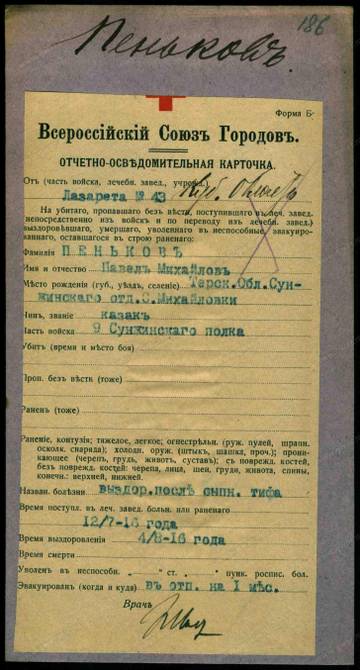 186
Пеньковъ.
Форма Б-
Всероссійскій Союзъ Городовъ.
ОТЧЕТНО-ОСВѢДОМИТЕЛЬНАЯ КАРТОЧКА.
Отъ (часть войска, лечебн. завед., учрежд.)
Лазарета № 43
На убитаго, пропавшаго безъ вѣсти, поступившаго въ леч. завед.
(непосредственно изъ войскъ и по переводу изъ лечебн. завед.)
выздоровѣвшаго, умершаго, уволеннаго въ неспособные, эвакуиро-
ваннаго, оставшагося въ строю раненаго:
Фамилія ПЕНЬКОВЪ
Имя и отчество Павелъ Михайловъ
Мѣсто рожденія (губ., уѣздъ, селеніе) Терск.Обл.Сун-
жинскаго отд.С.Михайловки
Чинъ, званіе казакъ
Часть войска 9 Сунжинскаго полка
Убитъ (время и мѣсто боя)
Проп. безъ вѣсти (тоже)
Раненъ (тоже)
Раненіе, контузія; тяжелое, легкое; огнестрѣльн. (руж. пулей, шрапн.
осколк. снаряда); холодн. оруж. (штыкъ, шашка, проч.); прони-
кающее (черепъ, грудь, животъ, суставъ); съ поврежд. костей,
безъ поврежд. костей: черепа, лица, шеи, груди, живота, спины,
конечн.: верхней, нижней.
Назван. болѣзни выздор.послѣ сыпн. тифа
Время поступл. въ леч. завед. больн. или раненаго
12/7-16 года
Время выздоровленія 4/8-16 года
Время смерти
Уволенъ въ неспособн. „ “ ст. „ “ пунк. роспис. бол.
Эвакуированъ (когда и куда) въ отп. на 1 мѣс.
Врачъ